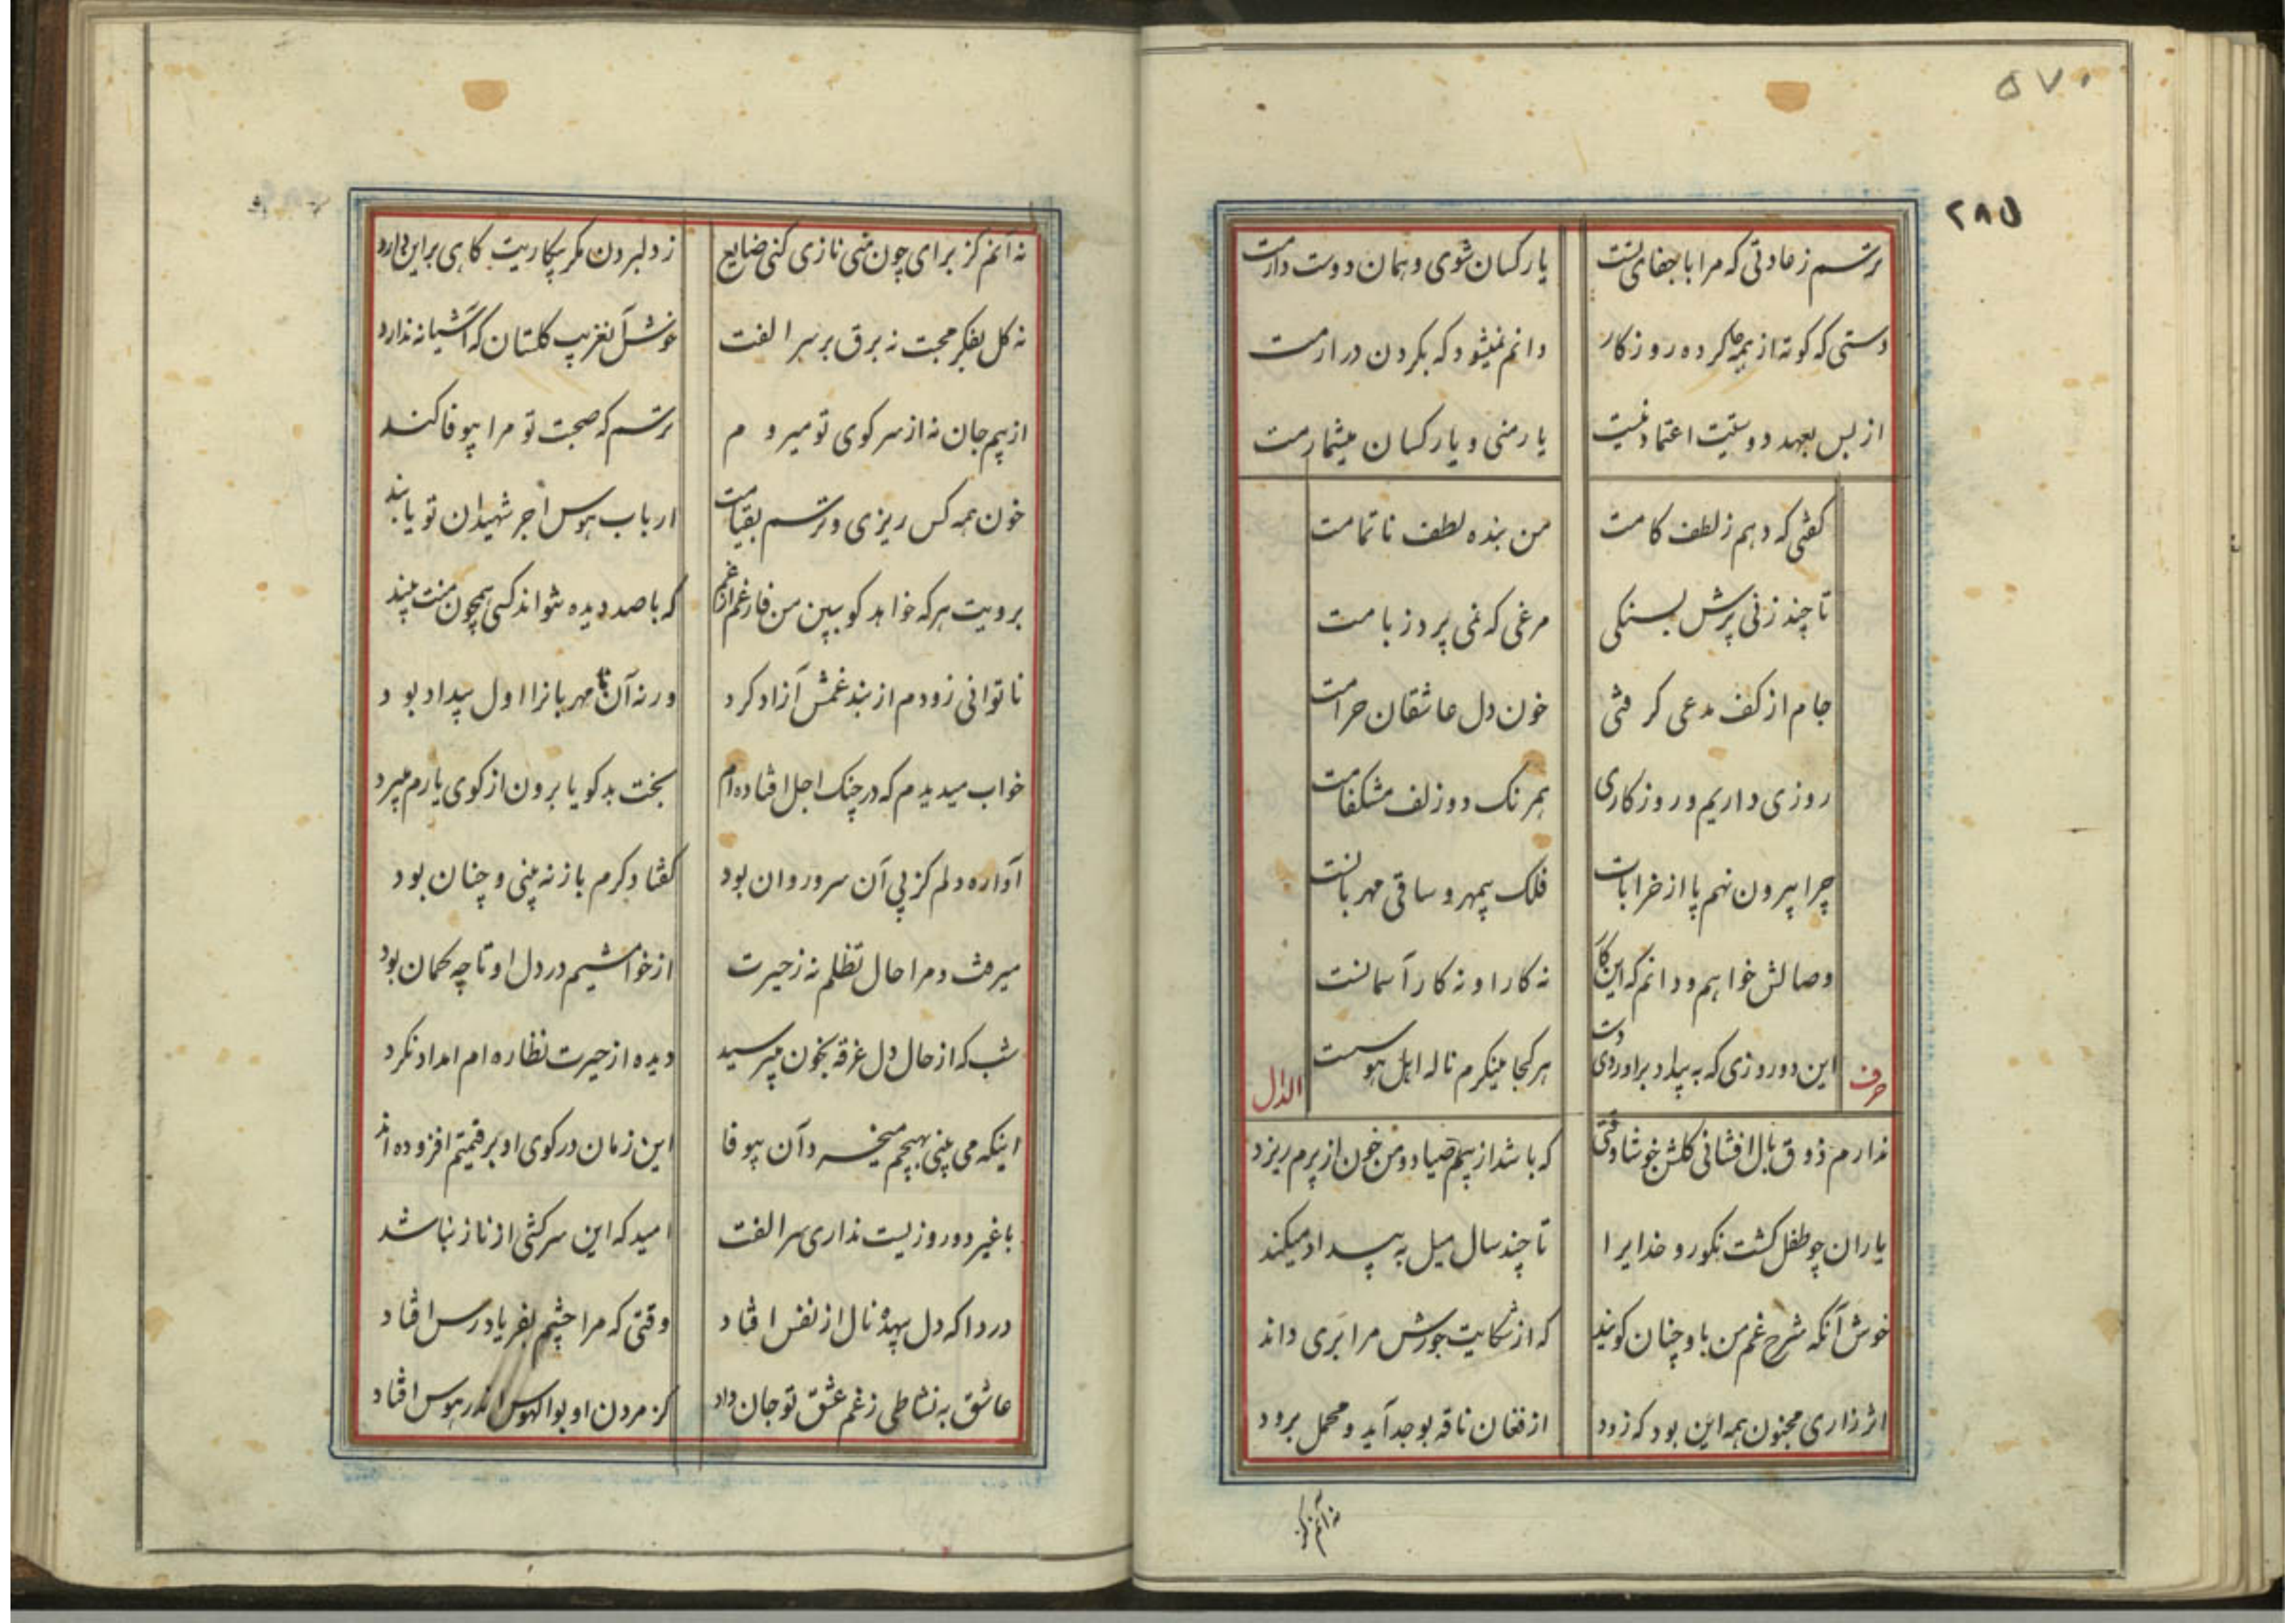 ۵۷۰
۲۸۵
ترسم ز عادتی که مرا با جفای تست یار کسان شوی و همان دوست دارمت
دستی که کوته از همه جا کرده روزکار دانم نمیشود که بکردن در ارمت
از بس بعهد دوستیت اعتماد نیست یار منی و یار کسان میشمارمت
کفتی که دهم ز لطف کامت من بنده لطف ناتمامت
تا چند زنی پرش بسنکی مرغی که نمی پرد ز بامت
جام از کف مدعی کرفتی خون دل عاشقان حرامت
روزی داریم و روزکاری همرنک دو زلف مشکفامت
چرا بیرون نهم پا از خرابات فلک بیمهر و ساقی مهربانست
وصالش خواهم و دانم که این کار نه کار او نه کار آسمانست
این دو روزی که به بیداد براوردی دست هر کجا مینکرم ناله اهل هوسست
حرف الدال
ندارم ذوق بال افشانی کلشن خوشا وقتی که باشد از بیم صیاد و من خون از پرم ریزد
یاران چو طفل کشت نکورو خدایرا تا چند سال میل به بیداد میکند
خوش آنکه شرح غم من باو چنان کویند که از شکایت جورش مرا بَری داند
اثر زاری مجنون همه این بود که زود از فغان ناقه بوجد آید و محمل برود
نه آنم کز
نه آنم کز برای چون منی نازی کنی ضایع ز دلبردن مکر بیکاریت کاهی براین دارد
نه کل بفکر محبت نه برق بر سر الفت خوش آنغریب کلستان که آشیانه ندارد
از بیم جان نه از سر کوی تو میروم ترسم که صحبت تو مرا بیوفا کند
خون همه کس ریزی و ترسم بقیامت ارباب هوس اجر شهیدان تو یابند
برویت هر که خواهد کو ببین من فارغم از غم که با صد دیده نتواند کسی همچون منت بیند
ناتوانی زودم از بند غمش آزاد کرد ورنه آن نا مهربانرا اول بیداد بود
خواب میدیدم که در چنک اجل افتاده ام بخت بد کویا برون از کوی یارم میبرد
آواره دلم کز پی آن سرو روان بود کفتا دکرم باز نه بینی و چنان بود
میرفت و مرا حال تظلم نه ز حیرت از خامشیم در دل او تا چه کمان بود
شب که از حال دل غرقه بخون میپرسید دیده از حیرت نظاره ام امداد نکرد
اینکه می بینی بهیچم میخرد آن بیوفا این زمان در کوی او بر قیمتم افزوده اند
با غیر دو روزیست نداری سر الفت امید که این سرکشی از ناز نباشد
دردا که دل بیهده نال از نفس افتاد وقتی که مرا چشم بفریادرس افتاد
عاشق به نشاطی ز غم عشق تو جان داد کز مردن او بوالهوس اندر هوس افتاد